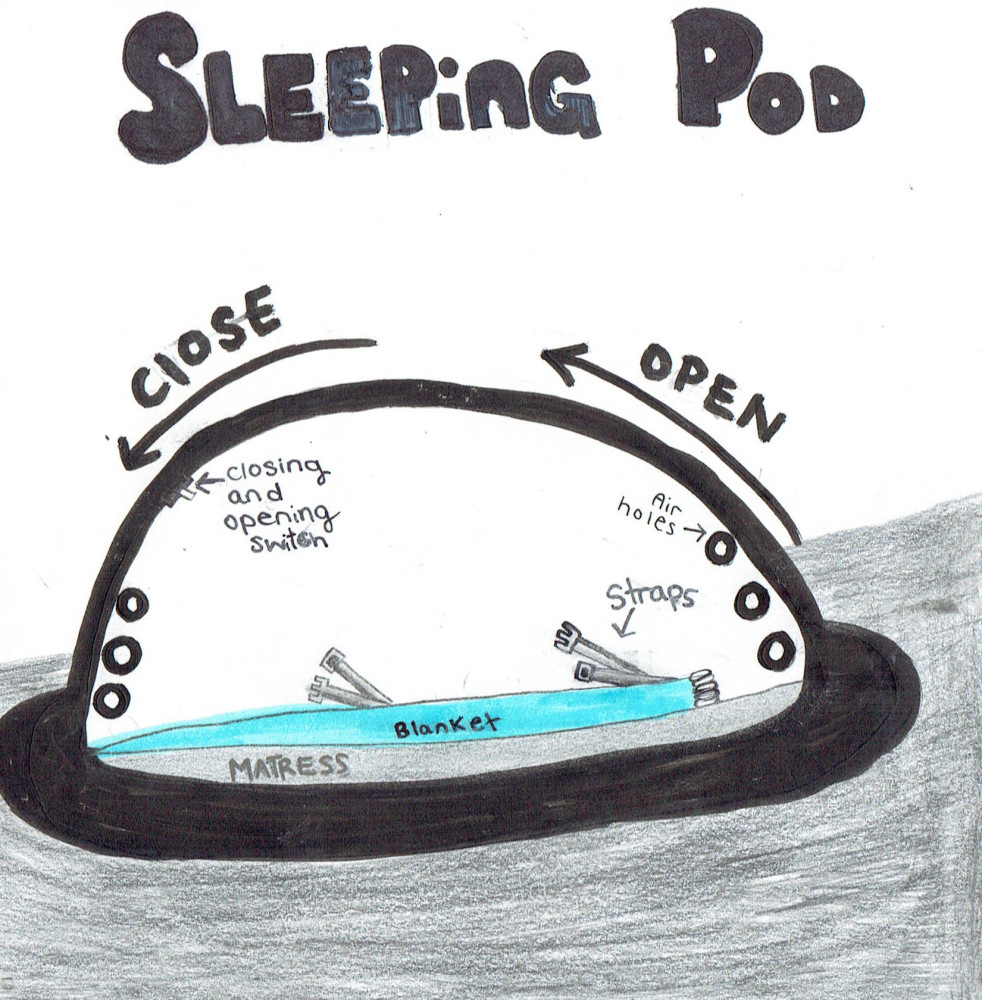 SLEEPiNG POD
ClOSE
OPEN
closing
and
opening
switch
Air
holes
Straps
Blanket
MATRESS